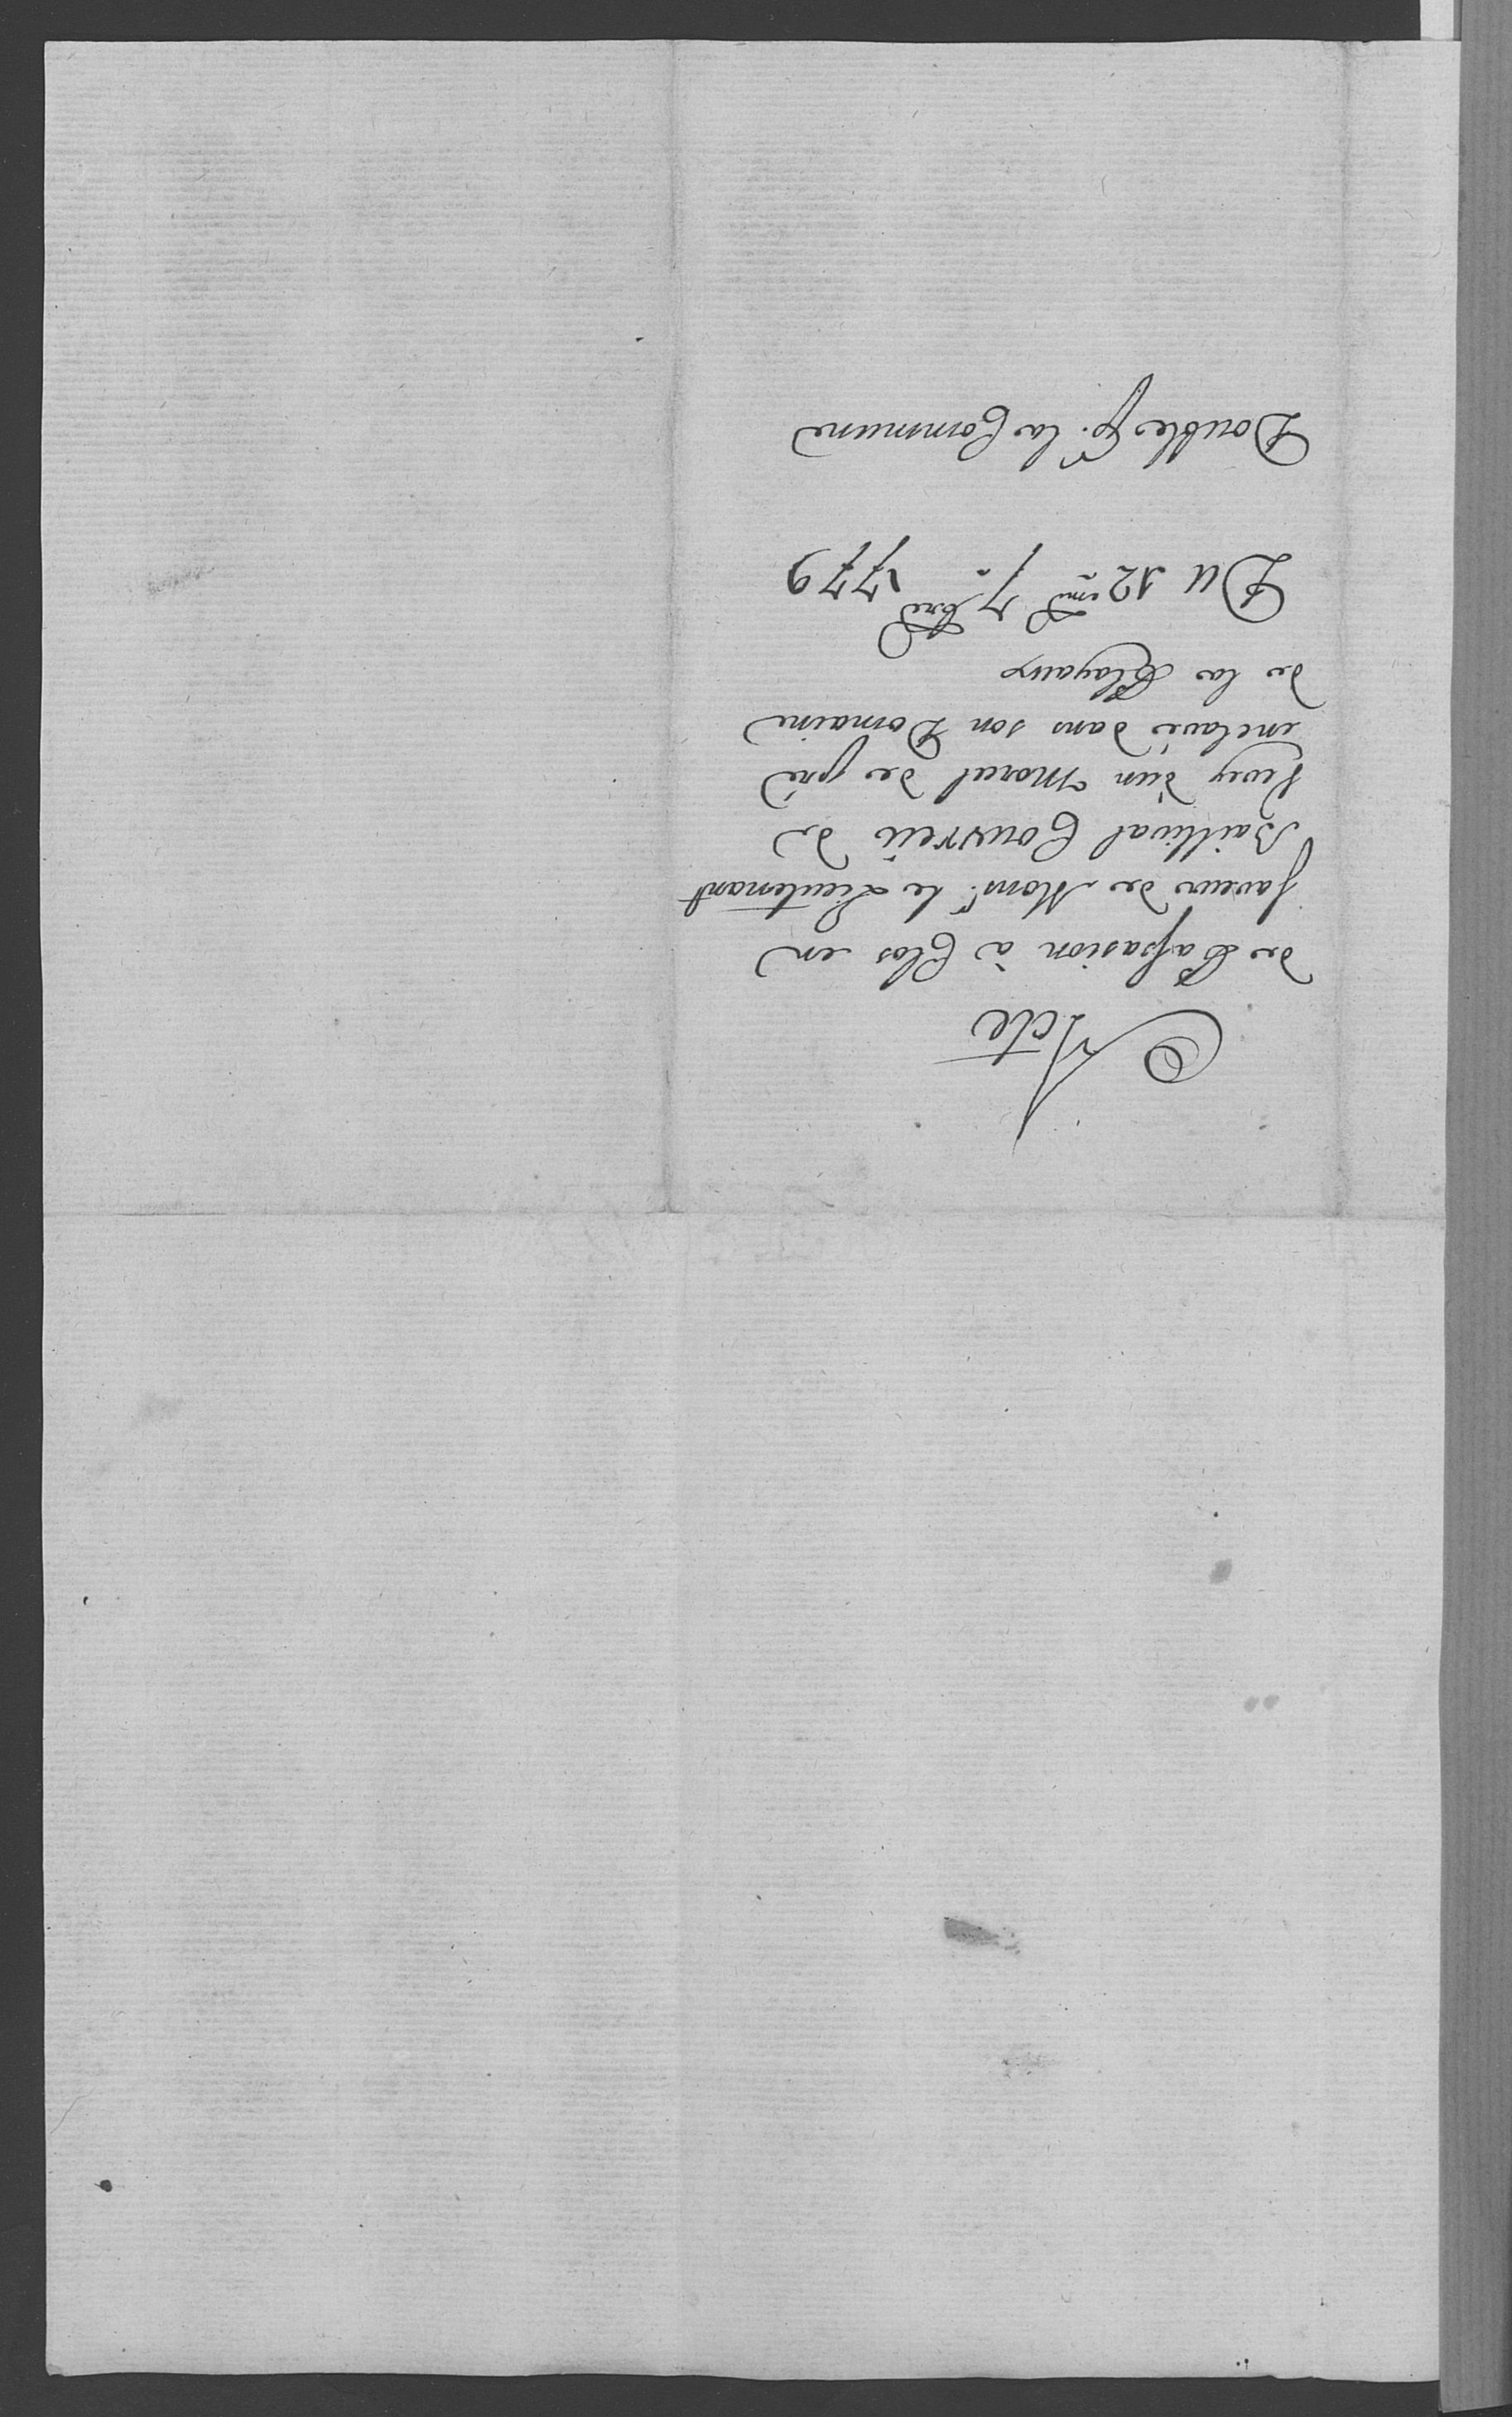 Acte
de Passasion à Clos en
faveur de Monsr. le Lieutenant
Baillival Couvreu de
Vevey d'un Morcel de pré
enclavé dans son Domaine
de la Playaux
Du 12me 7bre 1779
Double pr. la Commune